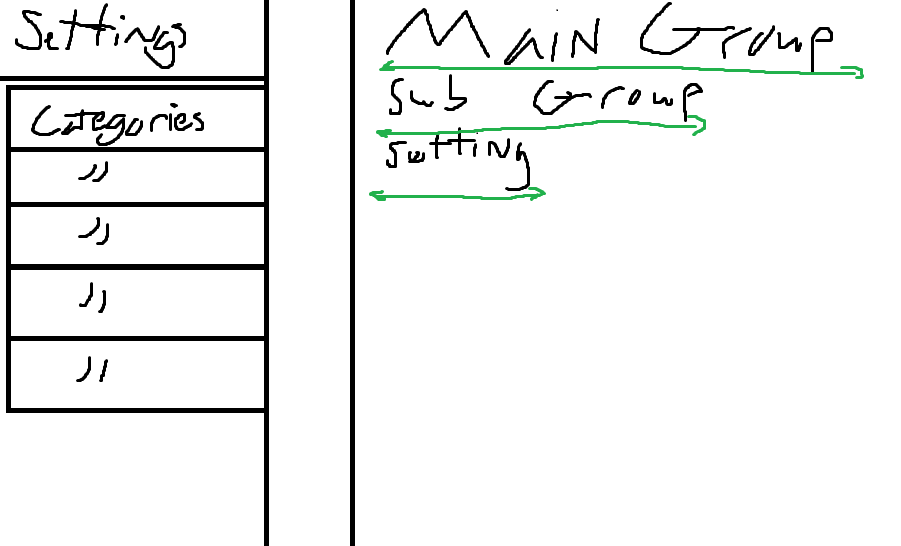 Settings
Categories
"
"
"
"
Main Group
Sub Group
Setting